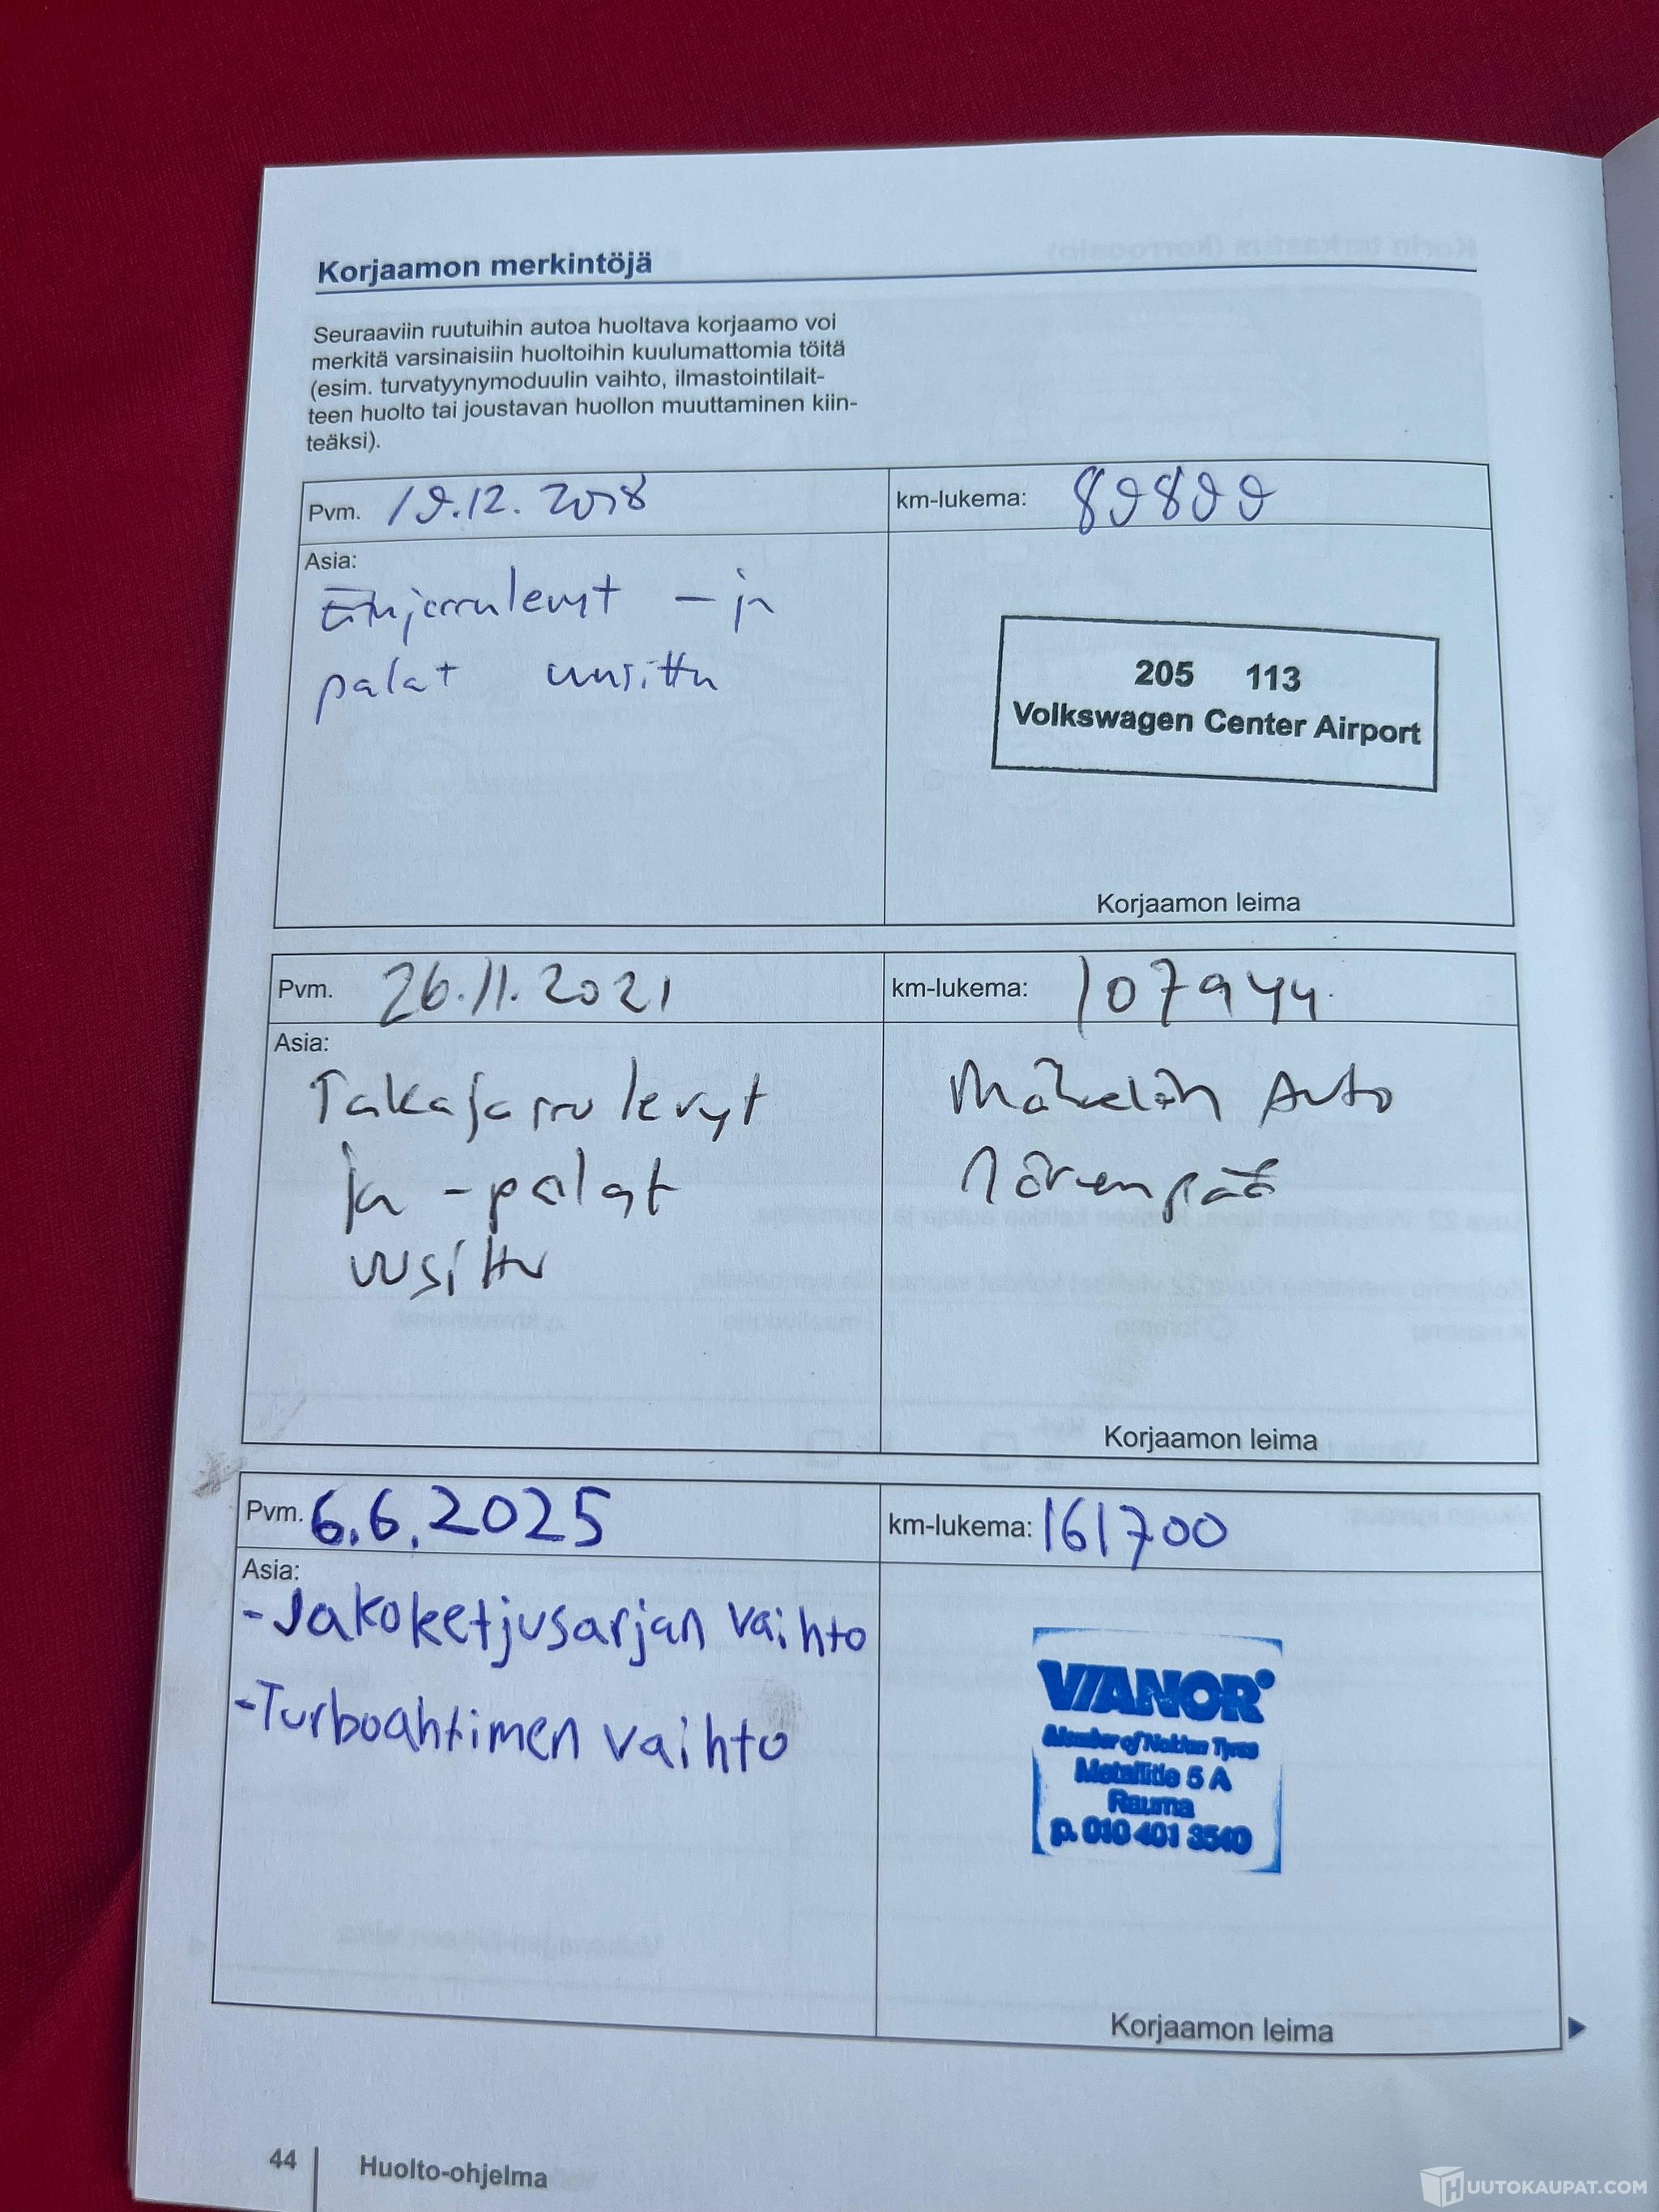 Korjaamon merkintöjä
Seuraaviin ruutuihin autoa huoltava korjaamo voi
merkitä varsinaisiin huoltoihin kuulumattomia töitä
(esim. turvatyynymoduulin vaihto, ilmastointilait-
teen huolto tai joustavan huollon muuttaminen kiin-
teäksi).
Pvm. 19.12.2018
km-lukema: 89899
Asia:
Etujarrulevyt - ja
palat uusittu
205 113
Volkswagen Center Airport
Korjaamon leima
Pvm. 26.11.2021
km-lukema: 107944
Asia:
Takajarrulevyt
ja -palat
uusittu
Mäkelän Auto
Järvenpää
Korjaamon leima
Pvm. 6.6.2025
km-lukema: 161700
Asia:
-Jakoketjusarjan vaihto
-Turboahtimen vaihto
VIANOR
Member of Nokian Tyres
Metallitie 5 A
Rauma
p. 010 401 3540
Korjaamon leima
44 Huolto-ohjelma
HUUTOKAUPAT.COM